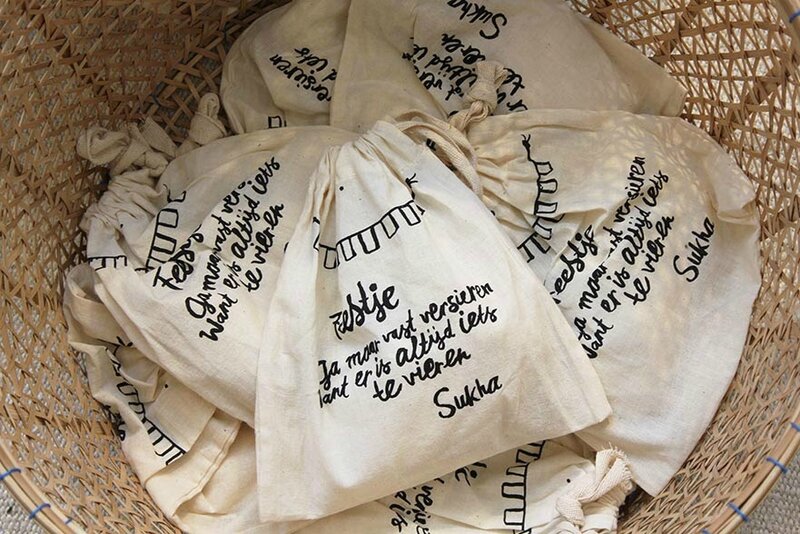 Sukha
Feestje
Ga maar vast versieren
Want er is altijd iets
te vieren
Feestje
Ga maar vast versieren
Want er is altijd iets
te vieren
Sukha
Feestje
Ga maar vast versieren
Want er is altijd iets
te vieren
Sukha